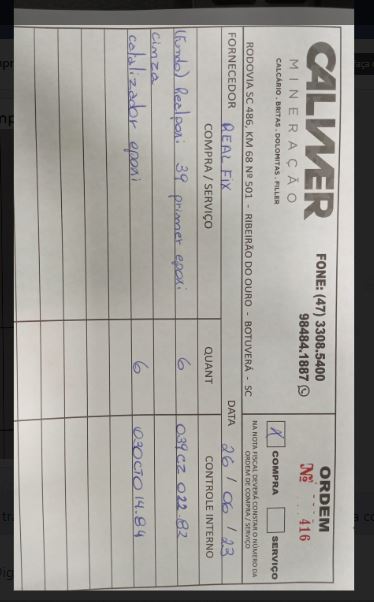 CALWER
MINERAÇÃO
CALCÁRIO . BRITAS . DOLOMITAS . FILLER
FONE: (47) 3308.5400
98484.1887
ORDEM
Nº 416
X COMPRA SERVIÇO
RODOVIA SC 486, KM 68 Nº 501 - RIBEIRÃO DO OURO - BOTUVERÁ - SC
NA NOTA FISCAL DEVERÁ CONSTAR O NÚMERO DA
ORDEM DE COMPRA / SERVIÇO
FORNECEDOR REAL FIX DATA 26 / 06 / 23
COMPRA / SERVIÇO QUANT CONTROLE INTERNO
(fundo) Realponi 39 primer eponi 6 039CZ 022.82
cinza
catalizador eponi 6 030CTO 14.84